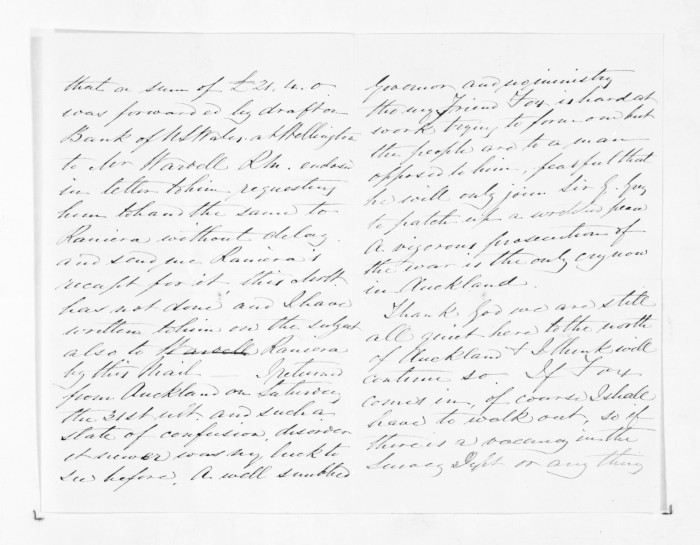 that a sum of £21.4.0
was forwarded by draft on
Bank of NSWales at Wellington
to Mr Wardell RM. enclosed
in letter to him requesting
him to hand the same to
Raniera without delay.
and send me Raniera's
receipt for it this
has not done and I have
written to him on the subject
also to Wardell Raniera
by this Mail — I returned
from Auckland on Saturday
the 31st ult. and such a
state of confusion, disorder
it never was my luck to
see before. A well snubbed
Governor and no ministry
tho my Friend Fox is hard at
work trying to form one but
the people are to a man
opposed to him, fearful that
he will only join Sir G. Grey
to patch up a peace
A vigorous prosecution of
the war is the only cry now
in Auckland.
Thank God we are still
all quiet here to the north
of Auckland & I think will
continue so. If Fox
comes in, of course I shall
have to walk out, so if
there is a vacancy in the
Survey Dept or any thing